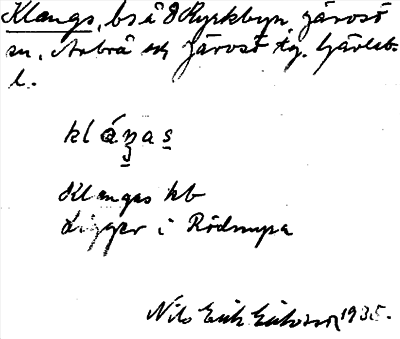 Klangs, bs å 8 Kyrkbyn, Järvsö
sn, Arbrå och Järvsö tg. Gävleb.
l.
kláŋas
Klangas hb
Ligger i Rödmyra
Nils Erik Eriksson 1935.